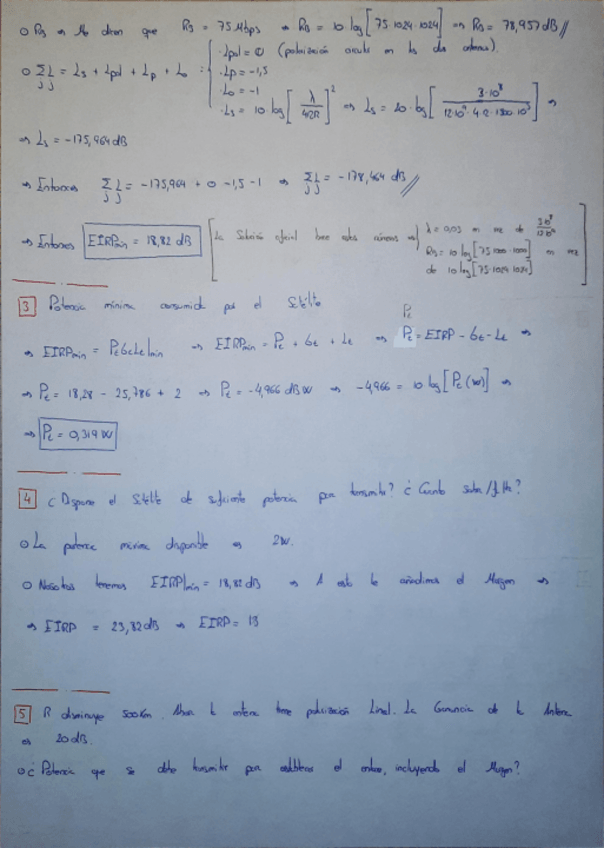 o RB => Me dicen que RB = 75 Mbps => RB = 10·log[75·1024·1024] => RB = 78,957 dB //
o Σj Lj = Ls + Lpol + Lp + Lo : { · Lpol = 0 (polarización circular en las dos antenas).
· Lp = -1,5
· Lo = -1
· Ls = 10·log[λ/4πR]² => Ls = 20·log[3·10⁸ / ] =>
=> Ls = -175,964 dB
=> Entonces Σj Lj = -175,964 + 0 - 1,5 - 1 => Σj Lj = -178,464 dB //
=> Entonces EIRPmin = 18,82 dB [La Solución oficial tiene estos números => { λ = 0,03 en vez de
RB = 10 log[75·1000·1000] en vez
de 10 log[75·1024·1024]
3 Potencia mínima consumida por el Satélite
Pt
=> EIRPmin = PtGtLt|min => EIRPmin = Pt + Gt + Lt => Pt = EIRP - Gt - Lt =>
=> Pt = 18,28 - 25,786 + 2 => Pt = -4,966 dBW => -4,966 = 10 log[Pt(w)] =>
=> Pt = 0,319 W
4 ¿Dispone el Satélite de suficiente potencia para transmitir? ¿Cuánto sobra/falta?
o La potencia mínima disponible es 2W.
o Nosotros tenemos EIRP|min = 18,82 dB => A esto le añadimos el Margen =>
=> EIRP = 23,82 dB => EIRP = 13
5 R disminuye 500Km. Ahora la antena tiene polarización Lineal. La Ganancia de la Antena
es 20 dB.
o ¿Potencia que se debe transmitir para establecer el enlace, incluyendo el Margen?